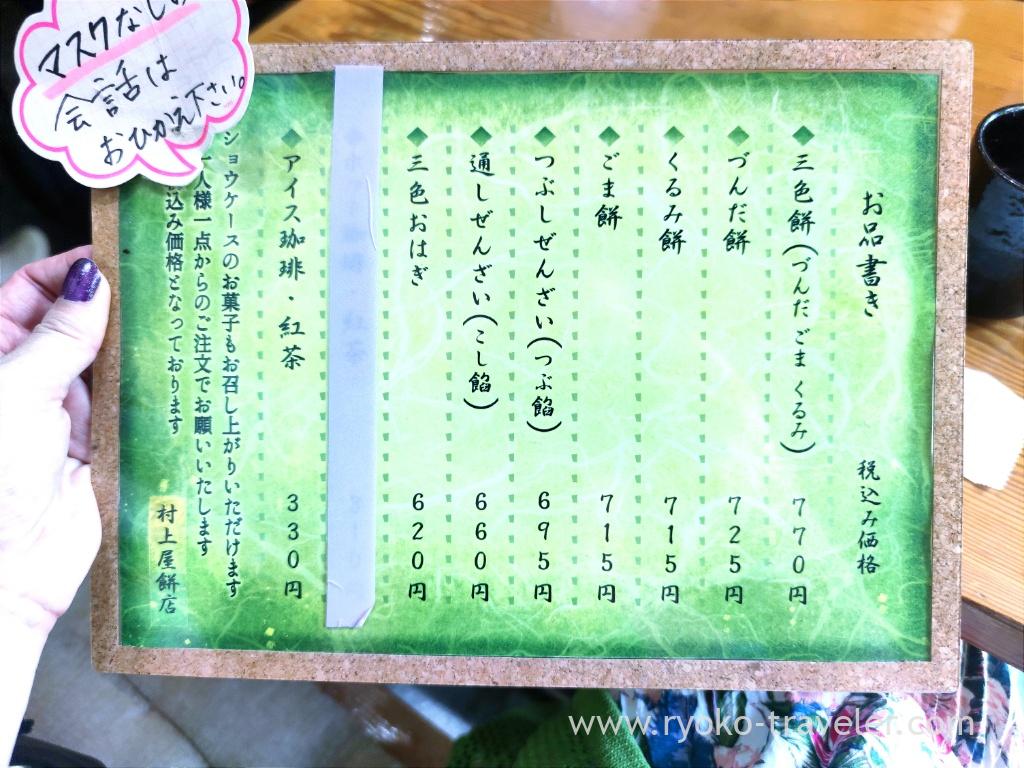 マスクなしの
会話は
おひかえ下さい。
お品書き 税込み価格
◆三色餅(づんだ ごま くるみ) 770円
◆づんだ餅 725円
◆くるみ餅 715円
◆ごま餅 715円
◆つぶしぜんざい(つぶ餡) 695円
◆通しぜんざい(こし餡) 660円
◆三色おはぎ 620円
◆アイス珈琲・紅茶 330円
ショウケースのお菓子もお召し上がりいただけます
一人様一点からのご注文でお願いいたします
込み価格となっております
村上屋餅店
www.ryoko-traveler.com